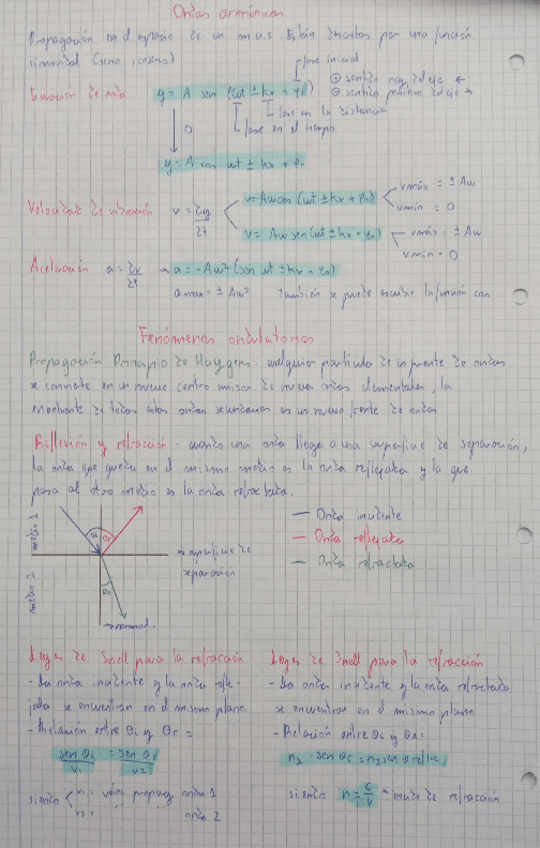 Ondas armónicas
Propagación en el espacio de un m.a.s. Están descritas por una función
sinusoidal (seno, coseno)
fase inicial
Ecuación de onda y = A sen (wt ± kx + φ₀) ⊕ sentido neg del eje ←
⊖ sentido positivo del eje →
fase en la distancia
fase en el tiempo
o
y = A cos wt ± kx + φ₀
Velocidad de vibración v = ∂y/∂t v = Aw cos (wt ± kx + φ₀) vmáx = ± Aw
vmín = 0
v = Aw sen (wt ± kx + φ₀) vmáx = ± Aw
vmín = 0
Aceleración a = ∂v/∂t → a = -Aw² (sen wt ± kx + φ₀)
amax = ± Aw² También se puede escribir la función con
Fenómenos ondulatorios
Propagación Principio de Huygens cualquier partícula de un frente de ondas
se convierte en un nuevo centro emisor de nuevas ondas elementales, la
envolvente de todas estas ondas secundarias es un nuevo frente de ondas
Reflexión y refracción cuando una onda llega a una superficie de separación,
la onda que queda en el mismo medio es la onda reflejada y la que
pasa al otro medio es la onda refractada.
medio 1
medio 2
→ superficie de
separación
→ normal
— Onda incidente
— Onda reflejada
— Onda refractada
Leyes de Snell para la refracción
- La onda incidente y la onda refle-
jada se encuentran en el mismo plano.
- Relación entre θi y θr =
sen θi/v₁ = sen θr/v2
siendo v₁ = veloc propag onda 1
v2 = " " onda 2
Leyes de Snell para la refracción
- La onda incidente y la onda refractada
se encuentran en el mismo plano
- Relación entre θi y θr:
siendo n = c/v índice de refracción